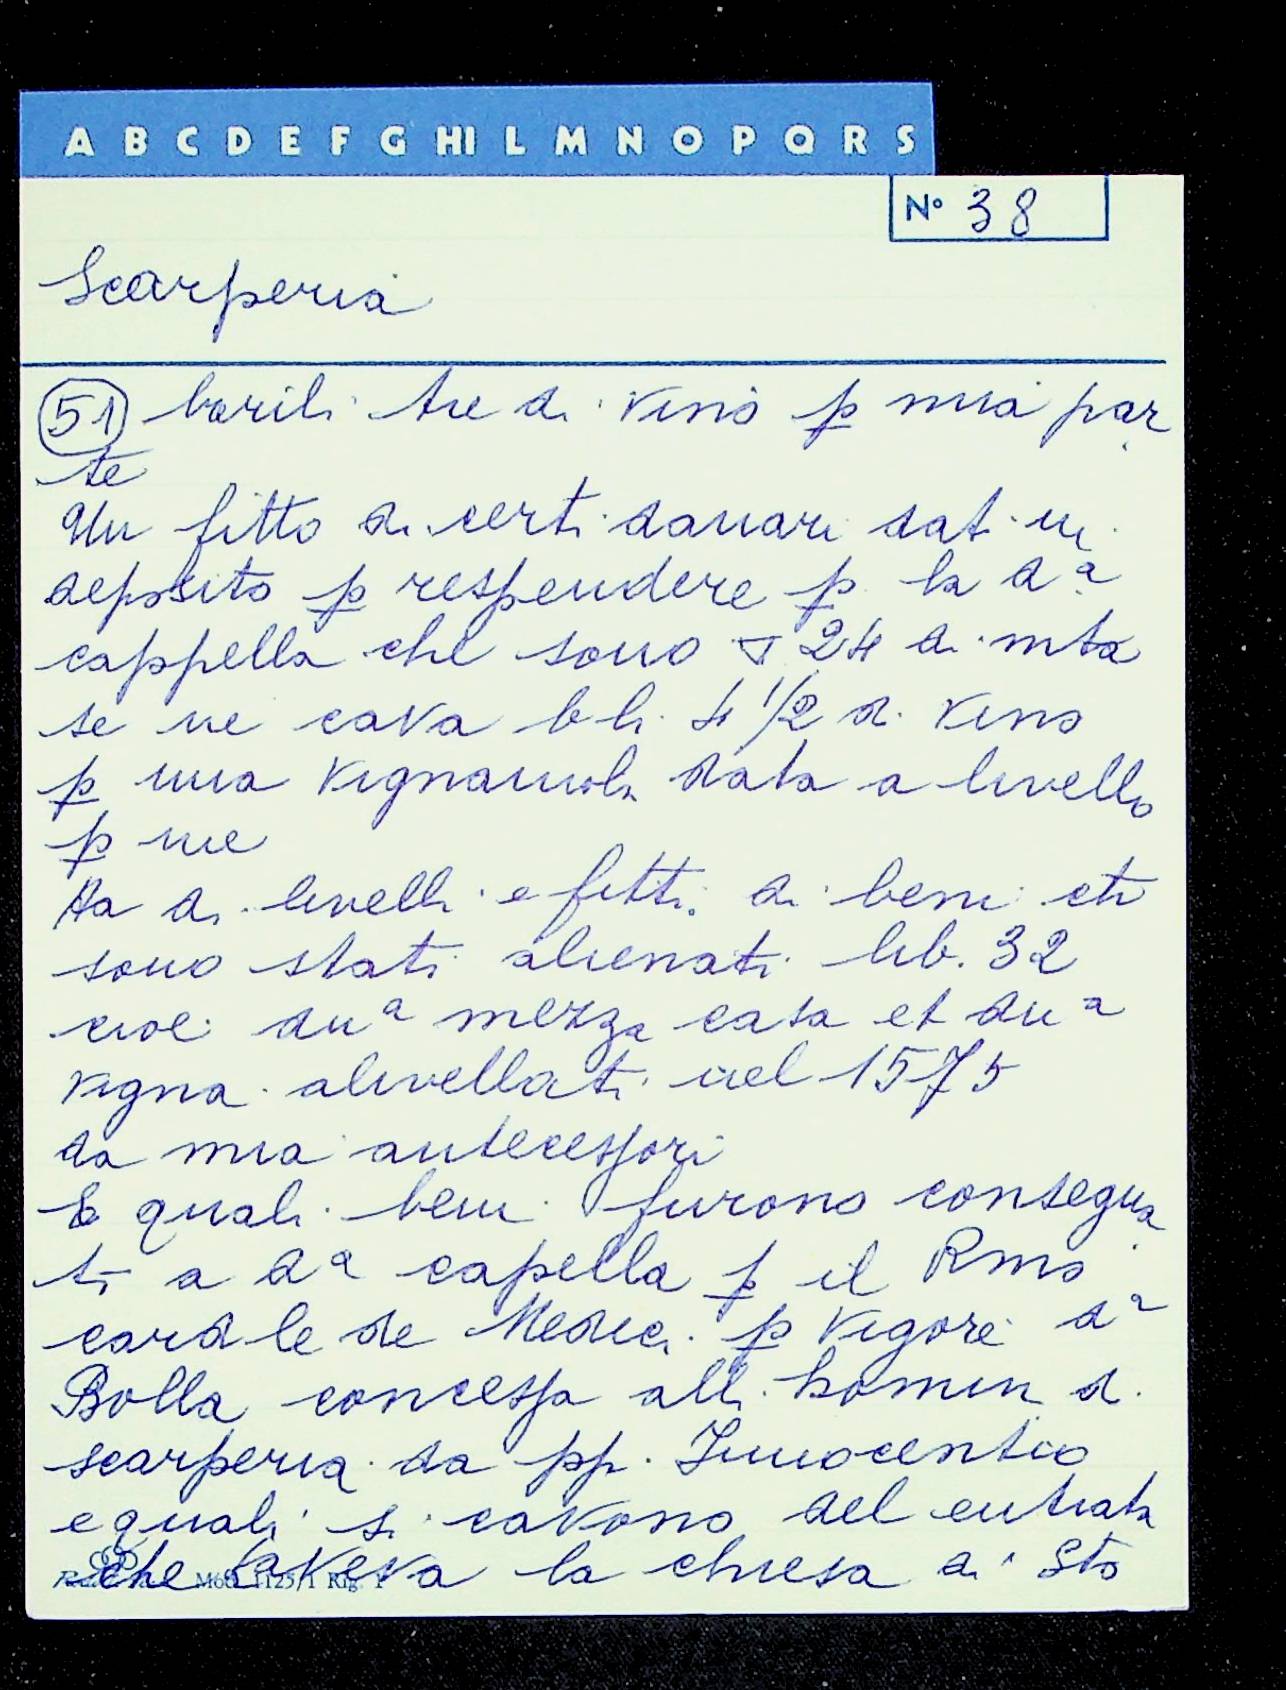 A B C D E F G HI L M N O P Q R S
N° 38
Scarperia
51 barili tre di vino p mia par
te
Un fitto di certi danari dati in
deposito p respendere p la da
cappella che sono 24 di mta
se ne cava bli 4 1/2 di vino
p una vignamola data a livello
p me
Ha di livelli e fitti di beni che
sono stati alienati lib. 32
cioe duа mezza casa et dua
vigna alivellati nel 1575
da mia antecessori
E quali beni furono consegna
ti a da capella p il Rmo
cardle de Medici p vigore da
Bolla concessa alli homin di
scarperia da pp. Innocentio
e quali si cavono del entrata
che haveva la chiesa di Sto
Mod. 1125/1 Rig. 1